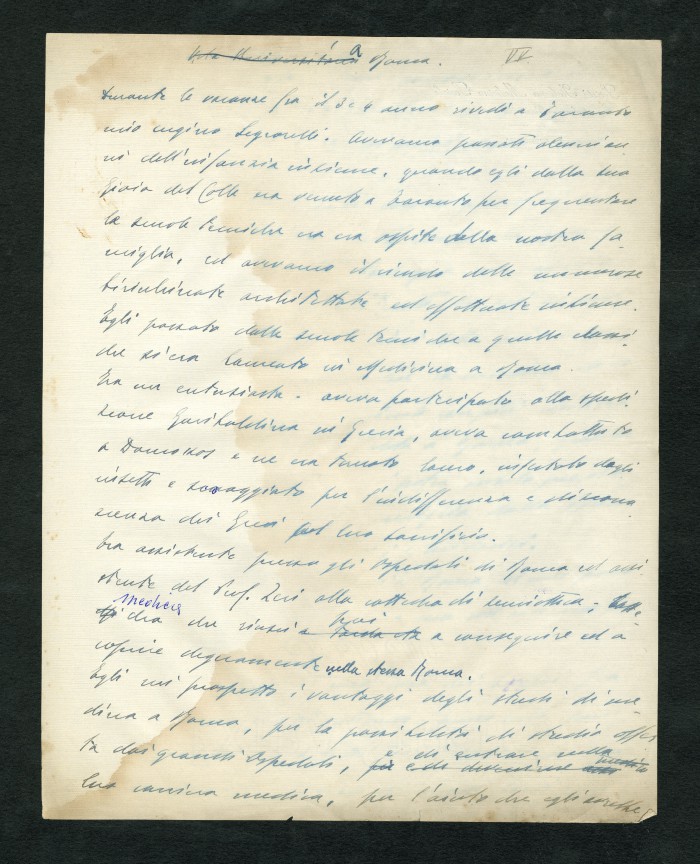 Vita Universitaria a Roma. IV
Durante le vacanze fra il 3 e 4 anno rividi a Taranto
mio cugino Signorelli. Avevamo passati alcuni an
ni dell'infanzia insieme, quando egli dalla sua
Gioia del Colle era venuto a Taranto per frequentare
le scuole tecniche ed era ospite della nostra fa-
miglia, ed avevamo il ricordo delle numerose
birichinate architettate ed effettuate insieme.
Egli passato dalle scuole tecniche a quelle classi
che si era laureato in Medicina a Roma.
Era un entusiasta - aveva partecipato alla spedi
zione Garibaldina in Grecia, aveva combattuto
a Domokos e ne era tornato lacero, infestato dagli
insetti e scoraggiato per l'indifferenza e discono
scenza dei Greci pel loro sacrificio.
Era assistente presso gli Ospedali di Roma ed assi
stente del Prof. Zeri alla cattedra di semeiotica;
medica
che riuscì poi a conseguire ed a
coprire degnamente nella stessa Roma.
Egli mi prospettò i vantaggi degli studi di me
dicina a Roma, per la possibilità di studio offer
ta dai grandi Ospedali, e di entrare nella
loro carriera medica, per l'aiuto che egli avrebbe